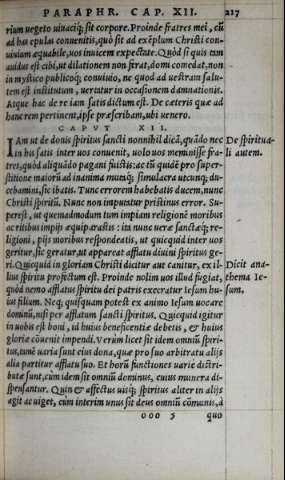 PARAPHR. CAP. XII. 217
rium uegeto uiuaciq; sit corpore. Proinde fratres mei, cũ
ad has epulas conuenitis, quò sit ad exẽplum Christi con-
uiuium æquabile, uos inuicem expectate. Quòd si quis tam
auidus est cibi, ut dilationem non ferat, domi comedat, non
in mystico publicoq; conuiuio, ne quod ad uestram salu-
tem est institutum, uertatur in occasionem damnationis.
Atque hac de re iam satis dictum est. De cæteris quæ ad
hanc rem pertinent, ipse præscribam, ubi uenero.
CAPVT XII.
IAm ut de donis spiritus sancti nonnihil dicã, quãdo nec
in his satis inter uos conuenit, uolo uos meminisse fra-
tres, quòd aliquãdo pagani fuistis: ac tũ quidẽ pro super-
stitione maiorũ ad inanima mutaq; simulacra utcunq; du-
cebamini, sic ibatis. Tunc errorem habebatis ducem, nunc
Christi spiritũ. Nunc non imputatur pristinus error. Su-
perest, ut quemadmodum tum impiam religionẽ moribus
ac ritibus impijs æquiparastis: ita nunc ueræ sanctæq; re-
ligioni, pijs moribus respondeatis, ut quicquid inter uos
geritur, sic geratur, ut appareat afflatu diuini spiritus ge-
ri. Quicquid in gloriam Christi dicitur aut canitur, ex il-
lius spiritu profectum est. Proinde nolim uos illud fugiat,
quòd nemo afflatus spiritu dei patris execratur Iesum hu-
ius filium. Neq; quisquam potest ex animo Iesum uocare
dominũ, nisi per afflatum sancti spiritus. Quicquid igitur
in uobis est boni, id huius beneficentiæ debetis, & huius
gloriæ cõuenit impendi. Verùm licet sit idem omniũ spiri-
tus, tamẽ uaria sunt eius dona, quæ pro suo arbitratu alijs
alia partitur afflatu suo. Et horũ functiones uariè distri-
butæ sunt, cùm idem sit omniũ dominus, cuius munera di-
spensantur. Quin & affectus uisq; spiritus aliter in alijs
agit ac uiget, cùm interim unus sit deus omniũ cõmunis, à
ooo 5 quo
De spiritua-
li autem.
Dicit ana-
thema Ie-
sum.